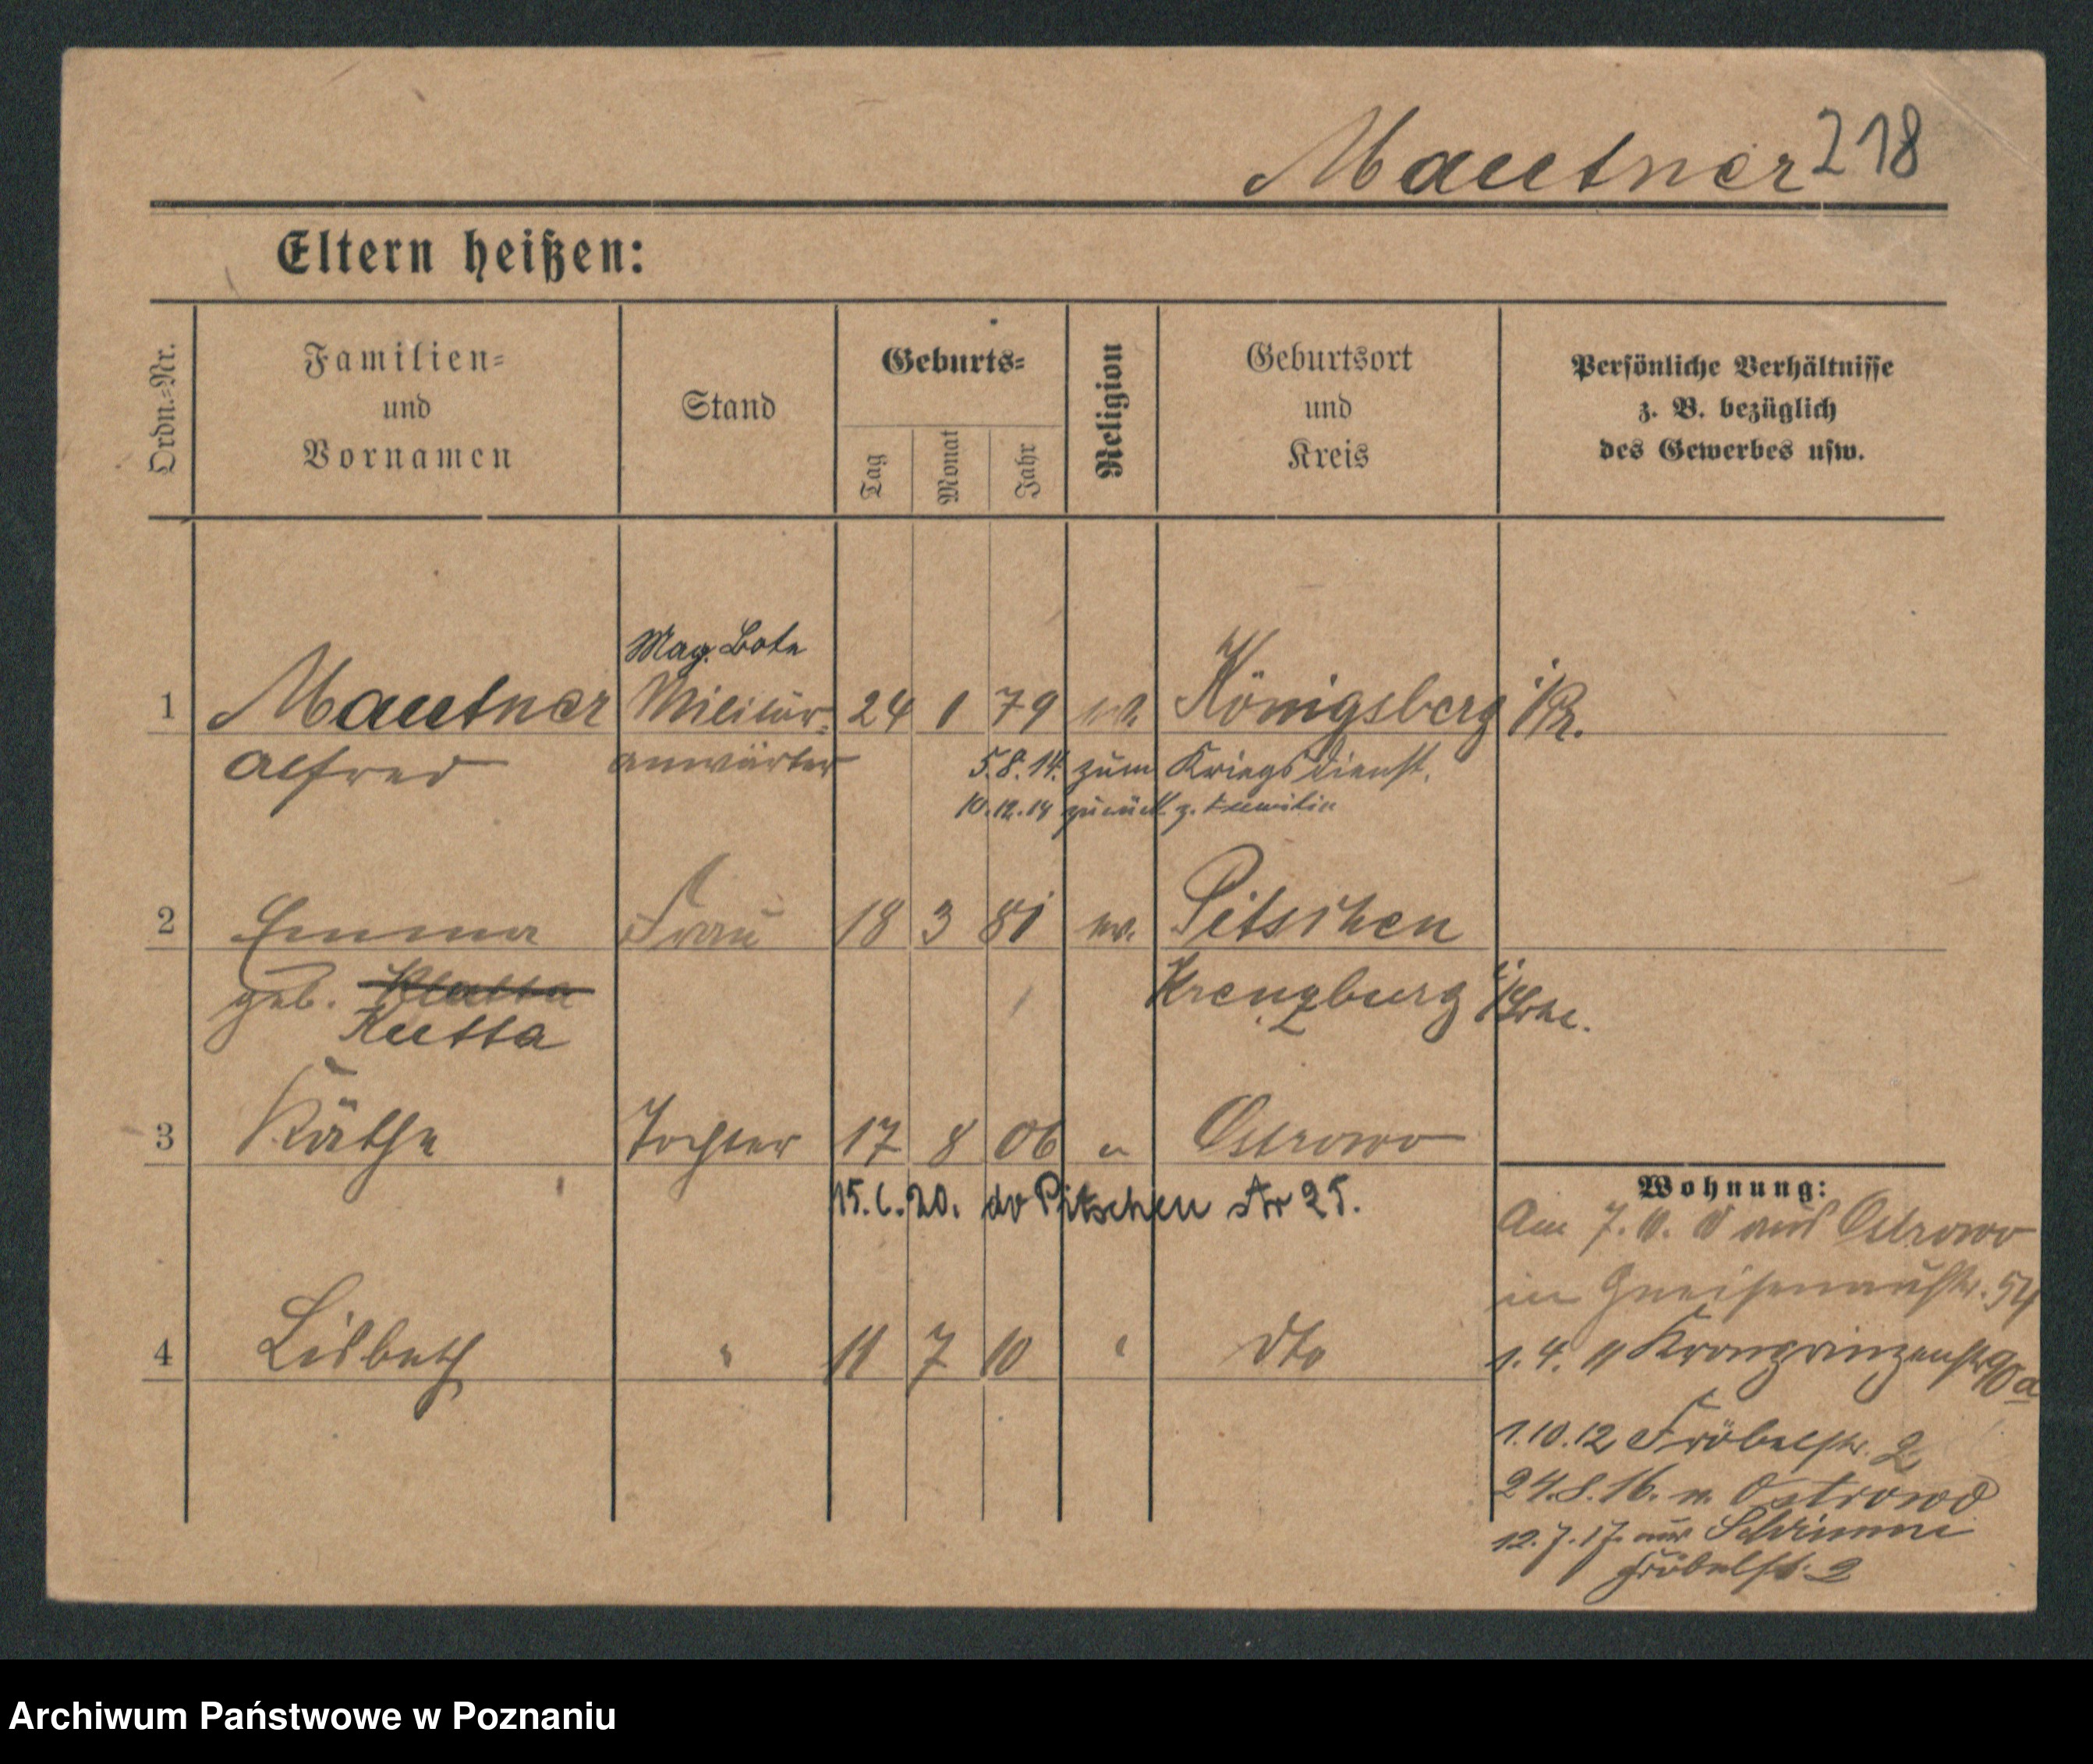 Mautner 218
Eltern heißen:
Ordn.-Nr.
Familien-
und
Vornamen
Stand
Geburts-
Tag
Monat
Jahr
Religion
Geburtsort
und
Kreis
Persönliche Verhältnisse
z. B. bezüglich
des Gewerbes usw.
Mag. Bote
1 Mautner Militär- 24 1 79 Königsberg i/Pr.
Alfred anwärter 5.8.14. zum Kriegsdienst.
10.12.14 zurück z. Familie
2 Emma Frau 18 3 81 ev. Pitschen
geb. Kreuzburg
Kutta
3 Käthe Tochter 17 8 06 " Ostrowo
15.6.20. do Pitschen Str 25.
4 Lisbeth " 11 7 10 " dto
Wohnung:
Am 7. aus Ostrowo
in Gneisenaustr. 54
1.4.11 Kronprinzenstr 90a
1.10.12 Fröbelstr. 2
24.8.16. n. Ostrowo
12.7.17. aus Schrimm
Fröbelstr. 2
Archiwum Państwowe w Poznaniu